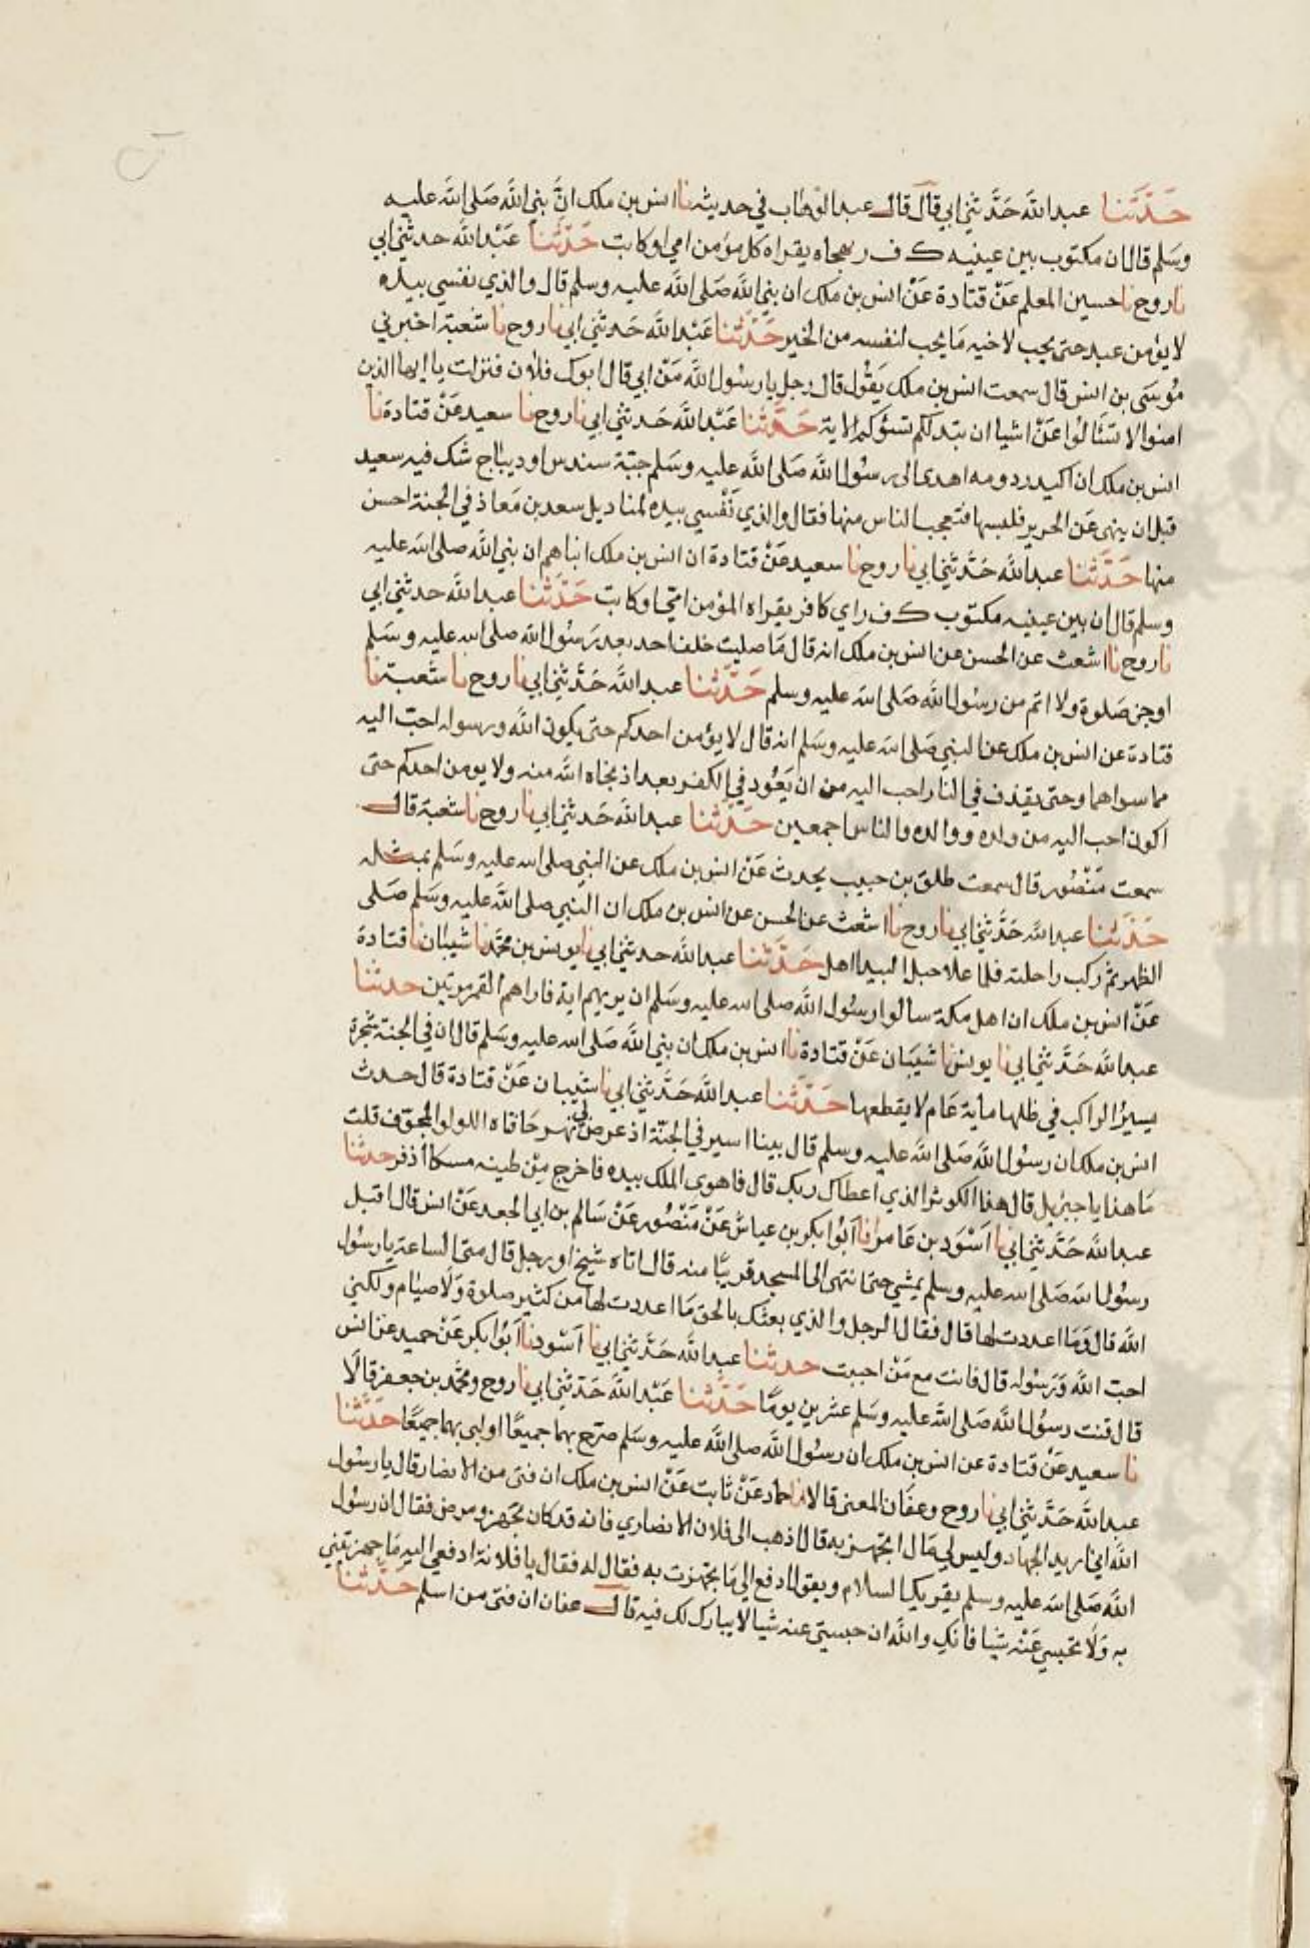 حدثنا عبد الله حدثني ابي قال قال عبد الوهاب في حديثه نا انس بن ملك ان نبي الله صلى الله عليه
وسلم قال ان مكتوب بين عينيه ك ف ر يهجاه يقراه كل مؤمن امي او كاتب حدثنا عبد الله حدثني ابي
نا روح نا حسين المعلم عن قتادة عن انس بن ملك ان نبي الله صلى الله عليه وسلم قال والذي نفسي بيده
لا يؤمن عبد حتى يحب لاخيه ما يحب لنفسه من الخير حدثنا عبد الله حدثني ابي نا روح نا شعبة اخبرني
موسى بن انس قال سمعت انس بن ملك يقول قال رجل يا رسول الله من ابي قال ابوك فلان فنزلت يا ايها الذين
امنوا لا تسئالوا عن اشيا ان تبد لكم تسؤكم الاية حدثنا عبد الله حدثني ابي نا روح نا سعيد عن قتادة نا
انس بن ملك ان اكيدر دومه اهدى الى رسول الله صلى الله عليه وسلم جبة سندس او ديباج شك فيه سعيد
قبل ان ينهى عن الحرير فلبسها فتعجب الناس منها فقال والذي نفسي بيده لمناديل سعد بن معاذ في الجنة احسن
منها حدثنا عبد الله حدثني ابي نا روح نا سعيد عن قتادة ان انس بن ملك انباهم ان نبي الله صلى الله عليه
وسلم قال ان بين عينيه مكتوب ك ف ر اي كافر يقراه المؤمن امي او كاتب حدثنا عبد الله حدثني ابي
نا روح نا اشعث عن الحسن عن انس بن ملك انه قال ما صليت خلف احد بعد رسول الله صلى الله عليه وسلم
اوجز صلوة ولا اتم من رسول الله صلى الله عليه وسلم حدثنا عبد الله حدثني ابي نا روح نا شعبة نا
قتادة عن انس بن ملك عن النبي صلى الله عليه وسلم انه قال لا يؤمن احدكم حتى يكون الله ورسوله احب اليه
مما سواهما وحتى يقذف في النار احب اليه من ان يعود في الكفر بعد اذ نجاه الله منه ولا يومن احدكم حتى
اكون احب اليه من ولده ووالده والناس اجمعين حدثنا عبد الله حدثني ابي نا روح نا شعبة قال
سمعت منصور قال سمعت طلق بن حبيب يحدث عن انس بن ملك عن النبي صلى الله عليه وسلم بمثله
حدثنا عبد الله حدثني ابي نا روح نا اشعث عن الحسن عن انس بن ملك ان النبي صلى الله عليه وسلم صلى
الظهر ثم ركب راحلته فلما علا حبل البيدا اهل حدثنا عبد الله حدثني ابي نا يونس بن محمد نا شيبان نا قتادة
عن انس بن ملك ان اهل مكة سالوا رسول الله صلى الله عليه وسلم ان يريهم اية فاراهم القمر مرتين حدثنا
عبد الله حدثني ابي نا يونس نا شيبان عن قتادة نا انس بن ملك ان نبي الله صلى الله عليه وسلم قال ان في الجنة شجرة
يسير الراكب في ظلها ماية عام لا يقطعها حدثنا عبد الله حدثني ابي نا شيبان عن قتادة قال حدث
انس بن ملك ان رسول الله صلى الله عليه وسلم قال بينا اسير في الجنة اذ عرض لي نهر حافتاه اللولو المجوف قلت
ما هذا يا جبريل قال هذا الكوثر الذي اعطاك ربك قال فاهوى الملك بيده فاخرج من طينه مسكا اذفر حدثنا
عبد الله حدثني ابي نا اسود بن عامر نا ابوا بكر بن عياش عن منصور عن سالم بن ابي الجعد عن انس قال اقبل
رسول الله صلى الله عليه وسلم يمشي حتى انتهى الى المسجد قريبا منه قال اتاه شيخ او رجل قال متى الساعة يا رسول
الله قال وما اعددت لها قال فقال الرجل والذي بعثك بالحق ما اعددت لها من كثير صلوة ولا صيام ولكني
احب الله ورسوله قال فانت مع من احببت حدثنا عبد الله حدثني ابي نا اسود نا ابوا بكر عن حميد عن انس
قال قنت رسول الله صلى الله عليه وسلم عشرين يوما حدثنا عبد الله حدثني ابي نا روح ومحمد بن جعفر قالا
نا سعيد عن قتادة عن انس بن ملك ان رسول الله صلى الله عليه وسلم صرح بهما جميعا او لبى بهما جميعا حدثنا
عبد الله حدثني ابي نا روح وعفان المعنى قالا نا حماد عن ثابت عن انس بن ملك ان فتى من الانصار قال يا رسول
الله اني اريد الجهاد وليس لي مال اتجهز به قال اذهب الى فلان الانصاري فانه قد كان تجهز ومرض فقال ان رسول
الله صلى الله عليه وسلم يقريك السلام ويقول ادفع الي ما تجهزت به فقال له فقال يا فلانة ادفعي اليه ما جهزتيني
به ولا تحبسي عنه شيا فانك والله ان حبستي عنه شيا لا يبارك لك فيه قال عفان ان فتى من اسلم حدثنا